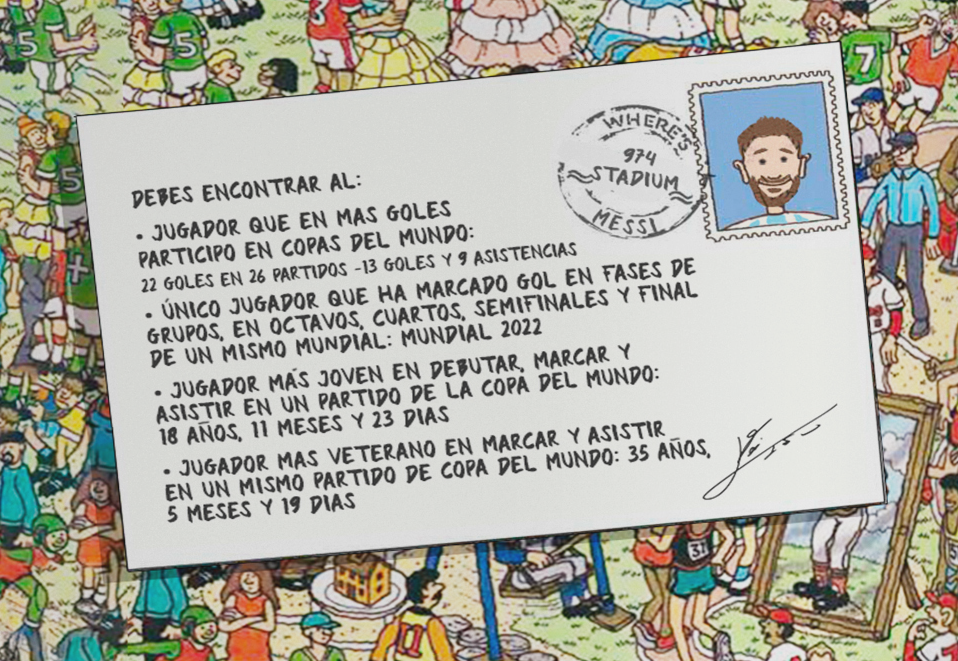 WHERE'S
974
STADIUM
MESSI
DEBES ENCONTRAR AL:
• JUGADOR QUE EN MAS GOLES
PARTICIPO EN COPAS DEL MUNDO:
22 GOLES EN 26 PARTIDOS -13 GOLES Y 9 ASISTENCIAS
• ÚNICO JUGADOR QUE HA MARCADO GOL EN FASES DE
GRUPOS, EN OCTAVOS, CUARTOS, SEMIFINALES Y FINAL
DE UN MISMO MUNDIAL: MUNDIAL 2022
• JUGADOR MÁS JOVEN EN DEBUTAR, MARCAR Y
ASISTIR EN UN PARTIDO DE LA COPA DEL MUNDO:
18 AÑOS, 11 MESES Y 23 DIAS
• JUGADOR MAS VETERANO EN MARCAR Y ASISTIR
EN UN MISMO PARTIDO DE COPA DEL MUNDO: 35 AÑOS,
5 MESES Y 19 DIAS
5
5
3
7
5
31